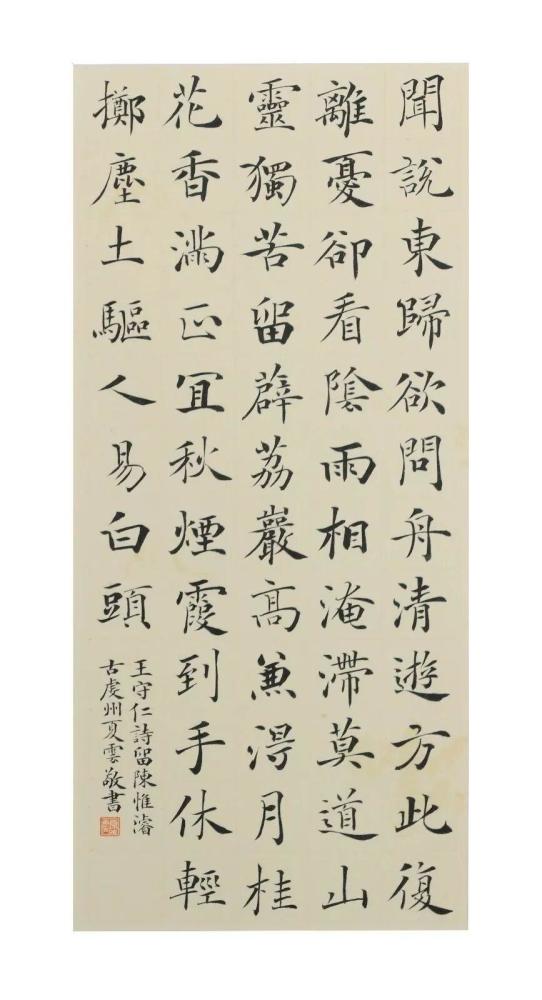 聞說東歸欲問舟清遊方此復
離憂卻看陰雨相淹滯莫道山
靈獨苦留薜荔巖高兼得月桂
花香滿正宜秋煙霞到手休輕
擲塵土驅人易白頭
王守仁詩留陳惟濬
古虔州夏雲敬書